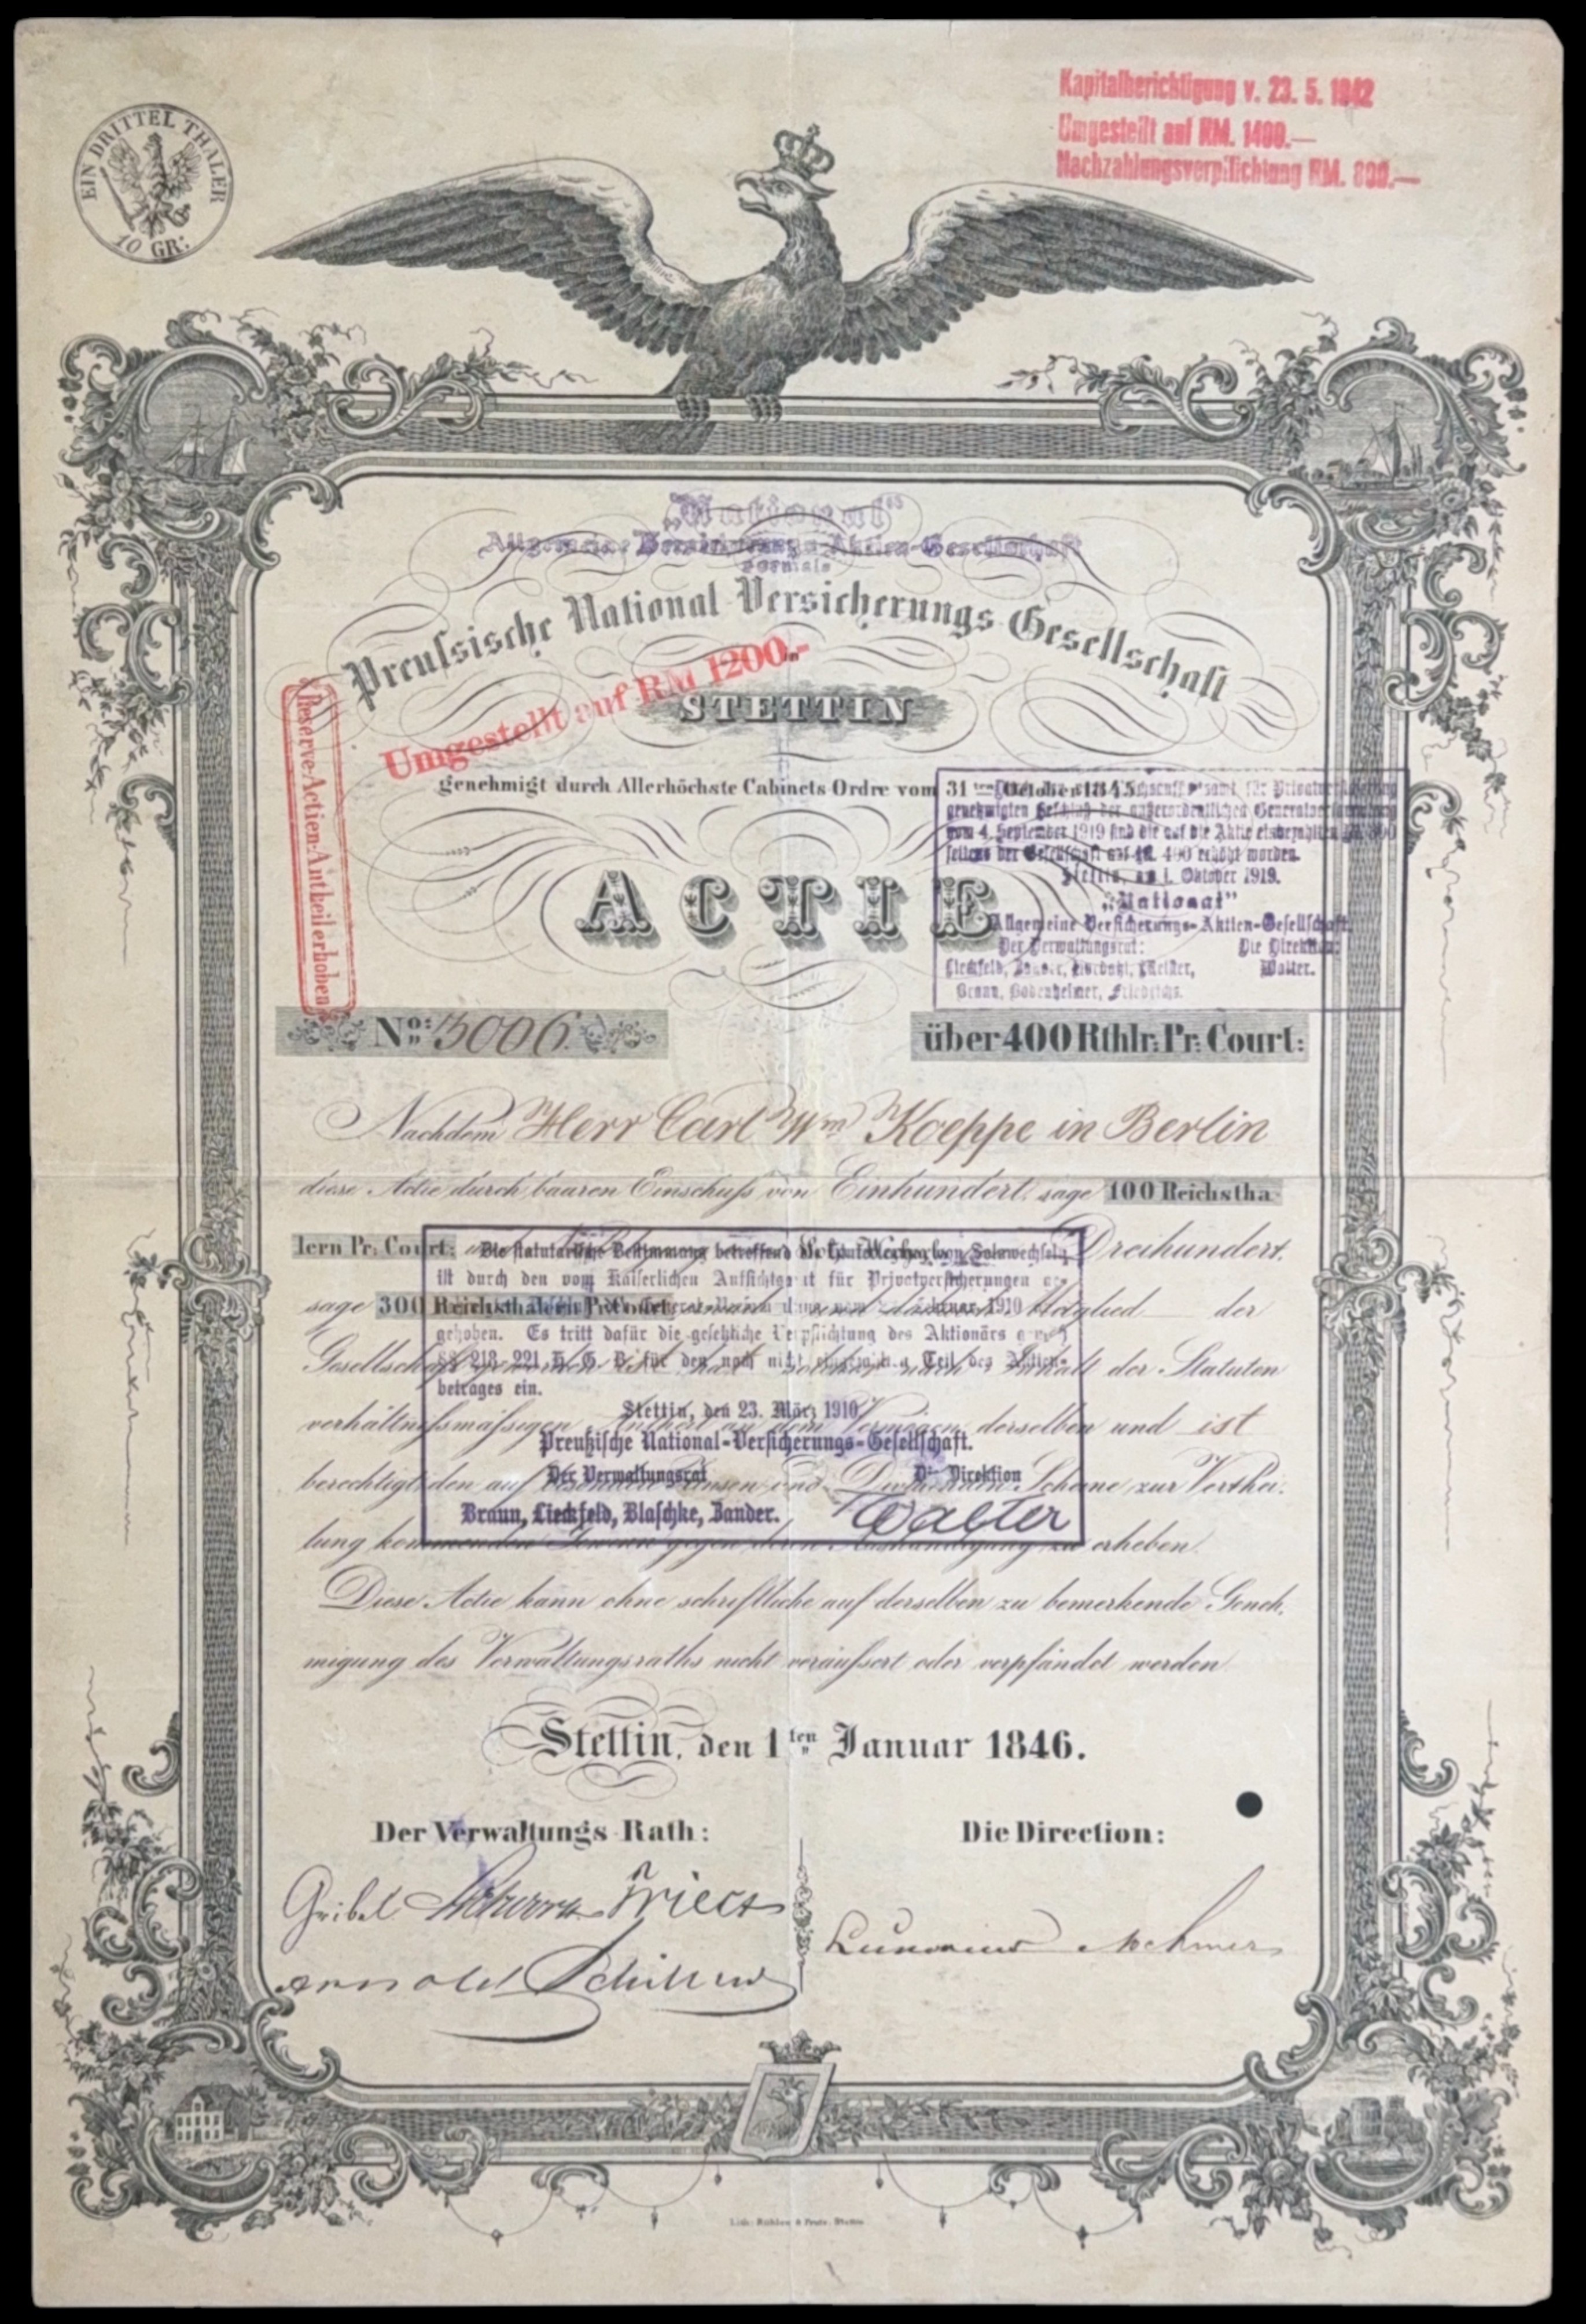 EIN DRITTEL THALER
10 GR:
Kapitalberichtigung v. 23. 5. 1942
Umgestellt auf RM. 1400.—
Nachzahlungsverpflichtung RM. 800.—
„National“
Allgemeine Versicherungs-Aktien-Gesellschaft
vormals
Preussische National-Versicherungs-Gesellschaft
in
STETTIN
Umgestellt auf RM 1200.-
Reserve-Actien-Antheil erhoben
genehmigt durch Allerhöchste Cabinets-Ordre vom 31ten October 1845.
genehmigten Beschluß der außerordentlichen Generalversammlung
vom 4. September 1919 sind die auf die Aktie eingezahlten
seitens der Gesellschaft auf M. 400 erhöht worden.
Stettin, am 1. Oktober 1919.
„National“
Allgemeine Versicherungs-Aktien-Gesellschaft.
Der Verwaltungsrat: Die Direktion:
Lieckfeld, Zander, Meister, Walter.
Braun, Bodenheimer, Friedrichs.
ACTIE
No: 3006.
über 400 Rthlr: Pr: Court:
Nachdem Herr Carl Wm Koeppe in Berlin
diese Actie durch baaren Einschuss von Einhundert, sage 100 Reichstha-
lern Pr: Court: Dreihundert,
sage 300 Reichsthalern Pr: Court: Mitglied der
Gesellschaft geworden ist, hat solcher nach Inhalt der Statuten
verhältnissmässigen Antheil an dem Vermögen derselben und ist
berechtigt den auf Zinsen und Dividenden Scheine zur Verthei-
lung kommenden Gewinn gegen deren Aushändigung zu erheben.
Die statutarische Bestimmung betreffend von Solawechseln
ist durch den vom Kaiserlichen Aufsichtsamt für Privatversicherungen ge-
1910
gehoben. Es tritt dafür die gesetzliche Verpflichtung des Aktionärs gemäß
§§ 218, 221 H. G. B. für den noch nicht eingezahlten Teil des Aktien-
betrages ein.
Stettin, den 23. März 1910
Preußische National-Versicherungs-Gesellschaft.
Der Verwaltungsrat Die Direktion
Braun, Lieckfeld, Blaschke, Zander. Walter
Diese Actie kann ohne schriftliche auf derselben zu bemerkende Geneh-
migung des Verwaltungsraths nicht veräussert oder verpfändet werden.
Stettin, den 1ten Januar 1846.
Der Verwaltungs-Rath: Die Direction:
Arnold